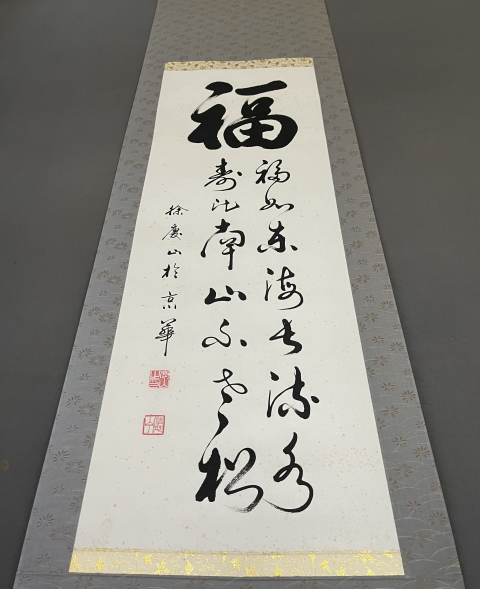 福
福如东海长流水
寿比南山不老松
徐庆山於京華